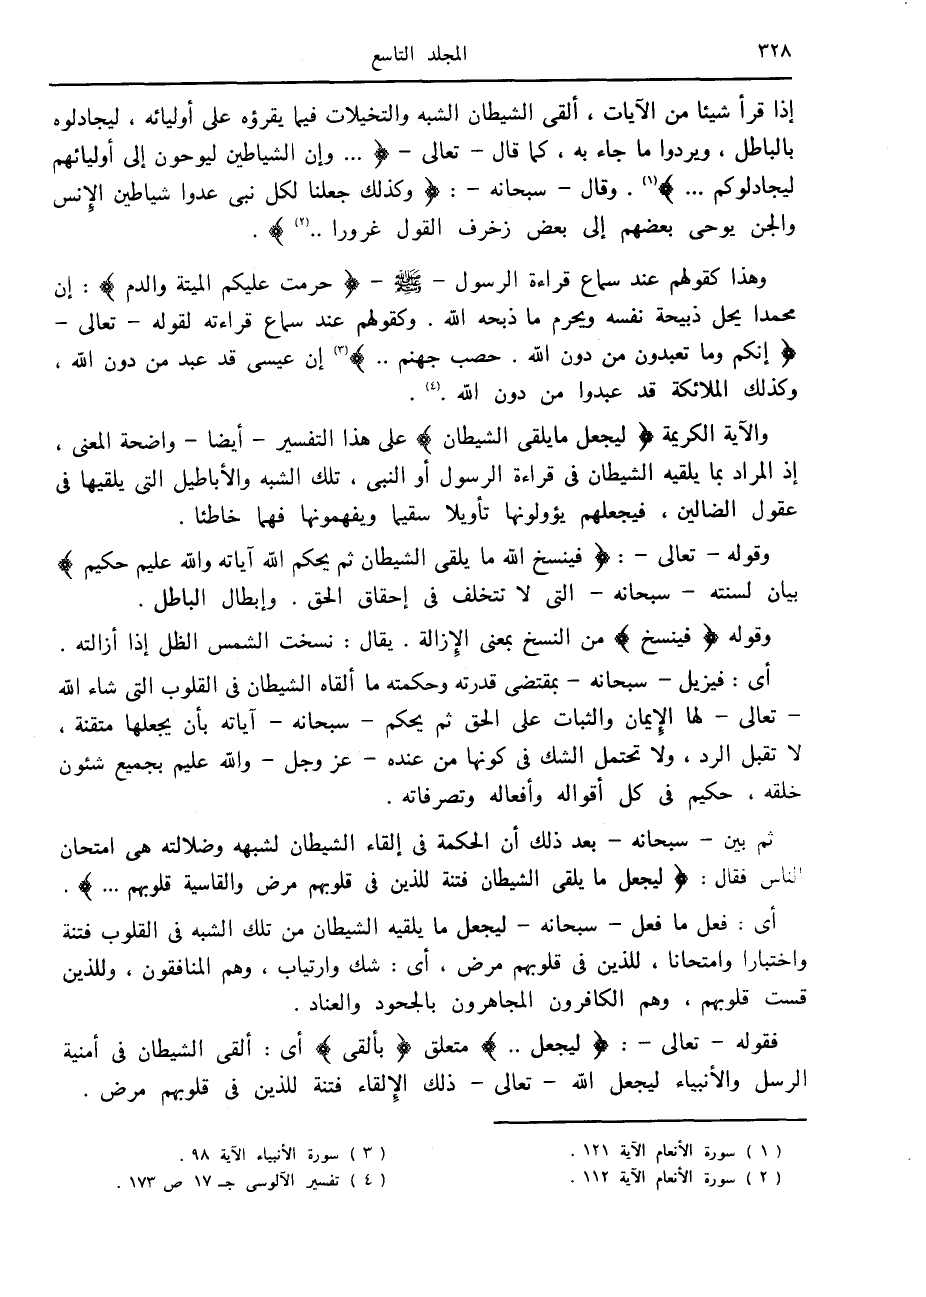 ٣٢٨
المجلد التاسع
إذا قرأ شيئا من الآيات ، ألقى الشيطان الشبه والتخيلات فيما يقرؤه على أوليائه ، ليجادلوه
بالباطل ، ويردوا ما جاء به ، كما قال – تعالى – ﴿ ... وإن الشياطين ليوحون إلى أوليائهم
ليجادلوكم ... ﴾(١) . وقال – سبحانه – : ﴿ وكذلك جعلنا لكل نبى عدوا شياطين الإنس
والجن يوحى بعضهم إلى بعض زخرف القول غرورا ..(٢) ﴾ .
وهذا كقولهم عند سماع قراءة الرسول – ﷺ – ﴿ حرمت عليكم الميتة والدم ﴾ : إن
محمدا يحل ذبيحة نفسه ويحرم ما ذبحه الله . وكقولهم عند سماع قراءته لقوله – تعالى –
﴿ إنكم وما تعبدون من دون الله . حصب جهنم .. ﴾(٣) إن عيسى قد عبد من دون الله ،
وكذلك الملائكة قد عبدوا من دون الله .(٤) .
والآية الكريمة ﴿ ليجعل مايلقى الشيطان ﴾ على هذا التفسير – أيضا – واضحة المعنى ،
إذ المراد بما يلقيه الشيطان فى قراءة الرسول أو النبى ، تلك الشبه والأباطيل التى يلقيها فى
عقول الضالين ، فيجعلهم يؤولونها تأويلا سقيما ويفهمونها فهما خاطئا .
وقوله – تعالى – : ﴿ فينسخ الله ما يلقى الشيطان ثم يحكم الله آياته والله عليم حكيم ﴾
بيان لسنته – سبحانه – التى لا تتخلف فى إحقاق الحق . وإبطال الباطل .
وقوله ﴿ فينسخ ﴾ من النسخ بمعنى الإزالة . يقال : نسخت الشمس الظل إذا أزالته .
أى : فيزيل – سبحانه – بمقتضى قدرته وحكمته ما ألقاه الشيطان فى القلوب التى شاء الله
– تعالى – لها الإيمان والثبات على الحق ثم يحكم – سبحانه – آياته بأن يجعلها متقنة ،
لا تقبل الرد ، ولا تحتمل الشك فى كونها من عنده – عز وجل – والله عليم بجميع شئون
خلقه ، حكيم فى كل أقواله وأفعاله وتصرفاته .
ثم بين – سبحانه – بعد ذلك أن الحكمة فى إلقاء الشيطان لشبهه وضلالته هى امتحان
الناس فقال : ﴿ ليجعل ما يلقى الشيطان فتنة للذين فى قلوبهم مرض والقاسية قلوبهم ... ﴾ .
أى : فعل ما فعل – سبحانه – ليجعل ما يلقيه الشيطان من تلك الشبه فى القلوب فتنة
واختبارا وامتحانا ، للذين فى قلوبهم مرض ، أى : شك وارتياب ، وهم المنافقون ، وللذين
قست قلوبهم ، وهم الكافرون المجاهرون بالجحود والعناد .
فقوله – تعالى – : ﴿ ليجعل .. ﴾ متعلق ﴿ بألقى ﴾ أى : ألقى الشيطان فى أمنية
الرسل والأنبياء ليجعل الله – تعالى – ذلك الإلقاء فتنة للذين فى قلوبهم مرض .
( ١ ) سورة الأنعام الآية ١٢١ .
( ٢ ) سورة الأنعام الآية ١١٢ .
( ٣ ) سورة الأنبياء الآية ٩٨ .
( ٤ ) تفسير الآلوسى جـ ١٧ ص ١٧٣ .